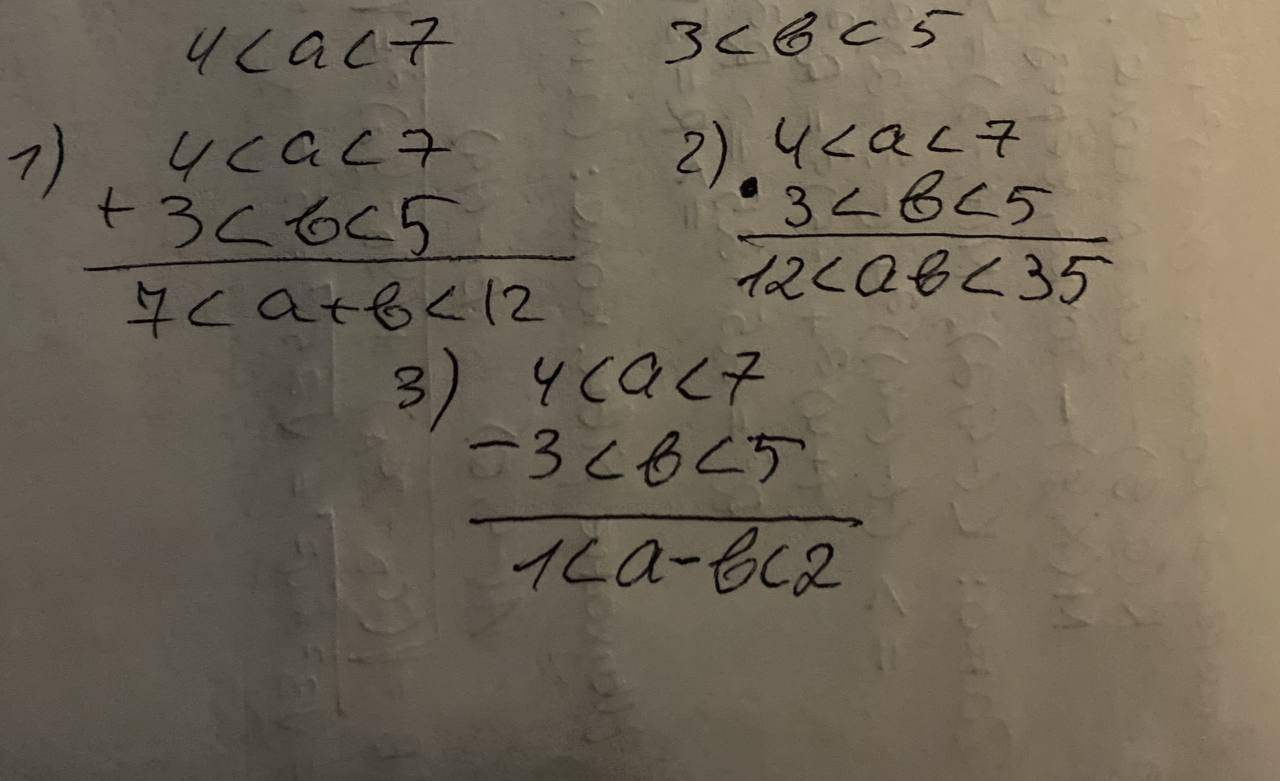 4 < a < 7
3 < в < 5
1)
4 < a < 7
+ 3 < в < 5
7 < a + в < 12
2)
4 < a < 7
• 3 < в < 5
12 < aв < 35
3)
4 < a < 7
- 3 < в < 5
1 < a - в < 2